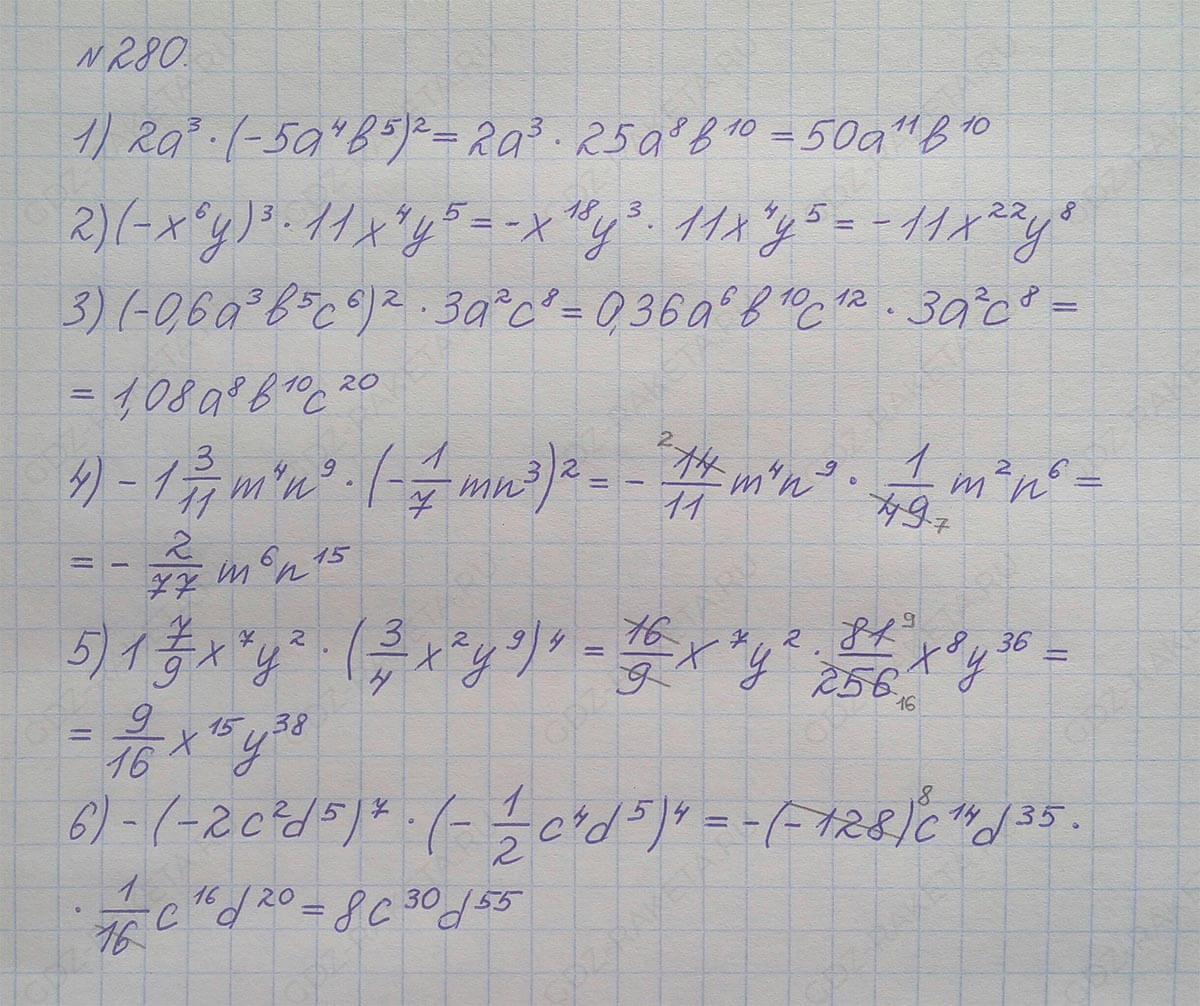 № 280.
1) 2a³ · (-5a⁴b⁵)² = 2a³ · 25a⁸b¹⁰ = 50a¹¹b¹⁰
2) (-x⁶y)³ · 11x⁴y⁵ = -x¹⁸y³ · 11x⁴y⁵ = -11x²²y⁸
3) (-0,6a³b⁵c⁶)² · 3a²c⁸ = 0,36a⁶b¹⁰c¹² · 3a²c⁸ =
= 1,08a⁸b¹⁰c²⁰
4) - 1 3/11 m⁴n⁹ · (- 1/7 mn³)² = - 14/11 m⁴n⁹ · 1/49 m²n⁶ =
= - 2/77 m⁶n¹⁵
5) 1 7/9 x⁷y² · (3/4 x²y⁹)⁴ = 16/9 x⁷y² · 81/256 x⁸y³⁶ =
= 9/16 x¹⁵y³⁸
6) - (-2c²d⁵)⁷ · (- 1/2 c⁴d⁵)⁴ = -(-128)c¹⁴d³⁵ ·
· 1/16 c¹⁶d²⁰ = 8c³⁰d⁵⁵